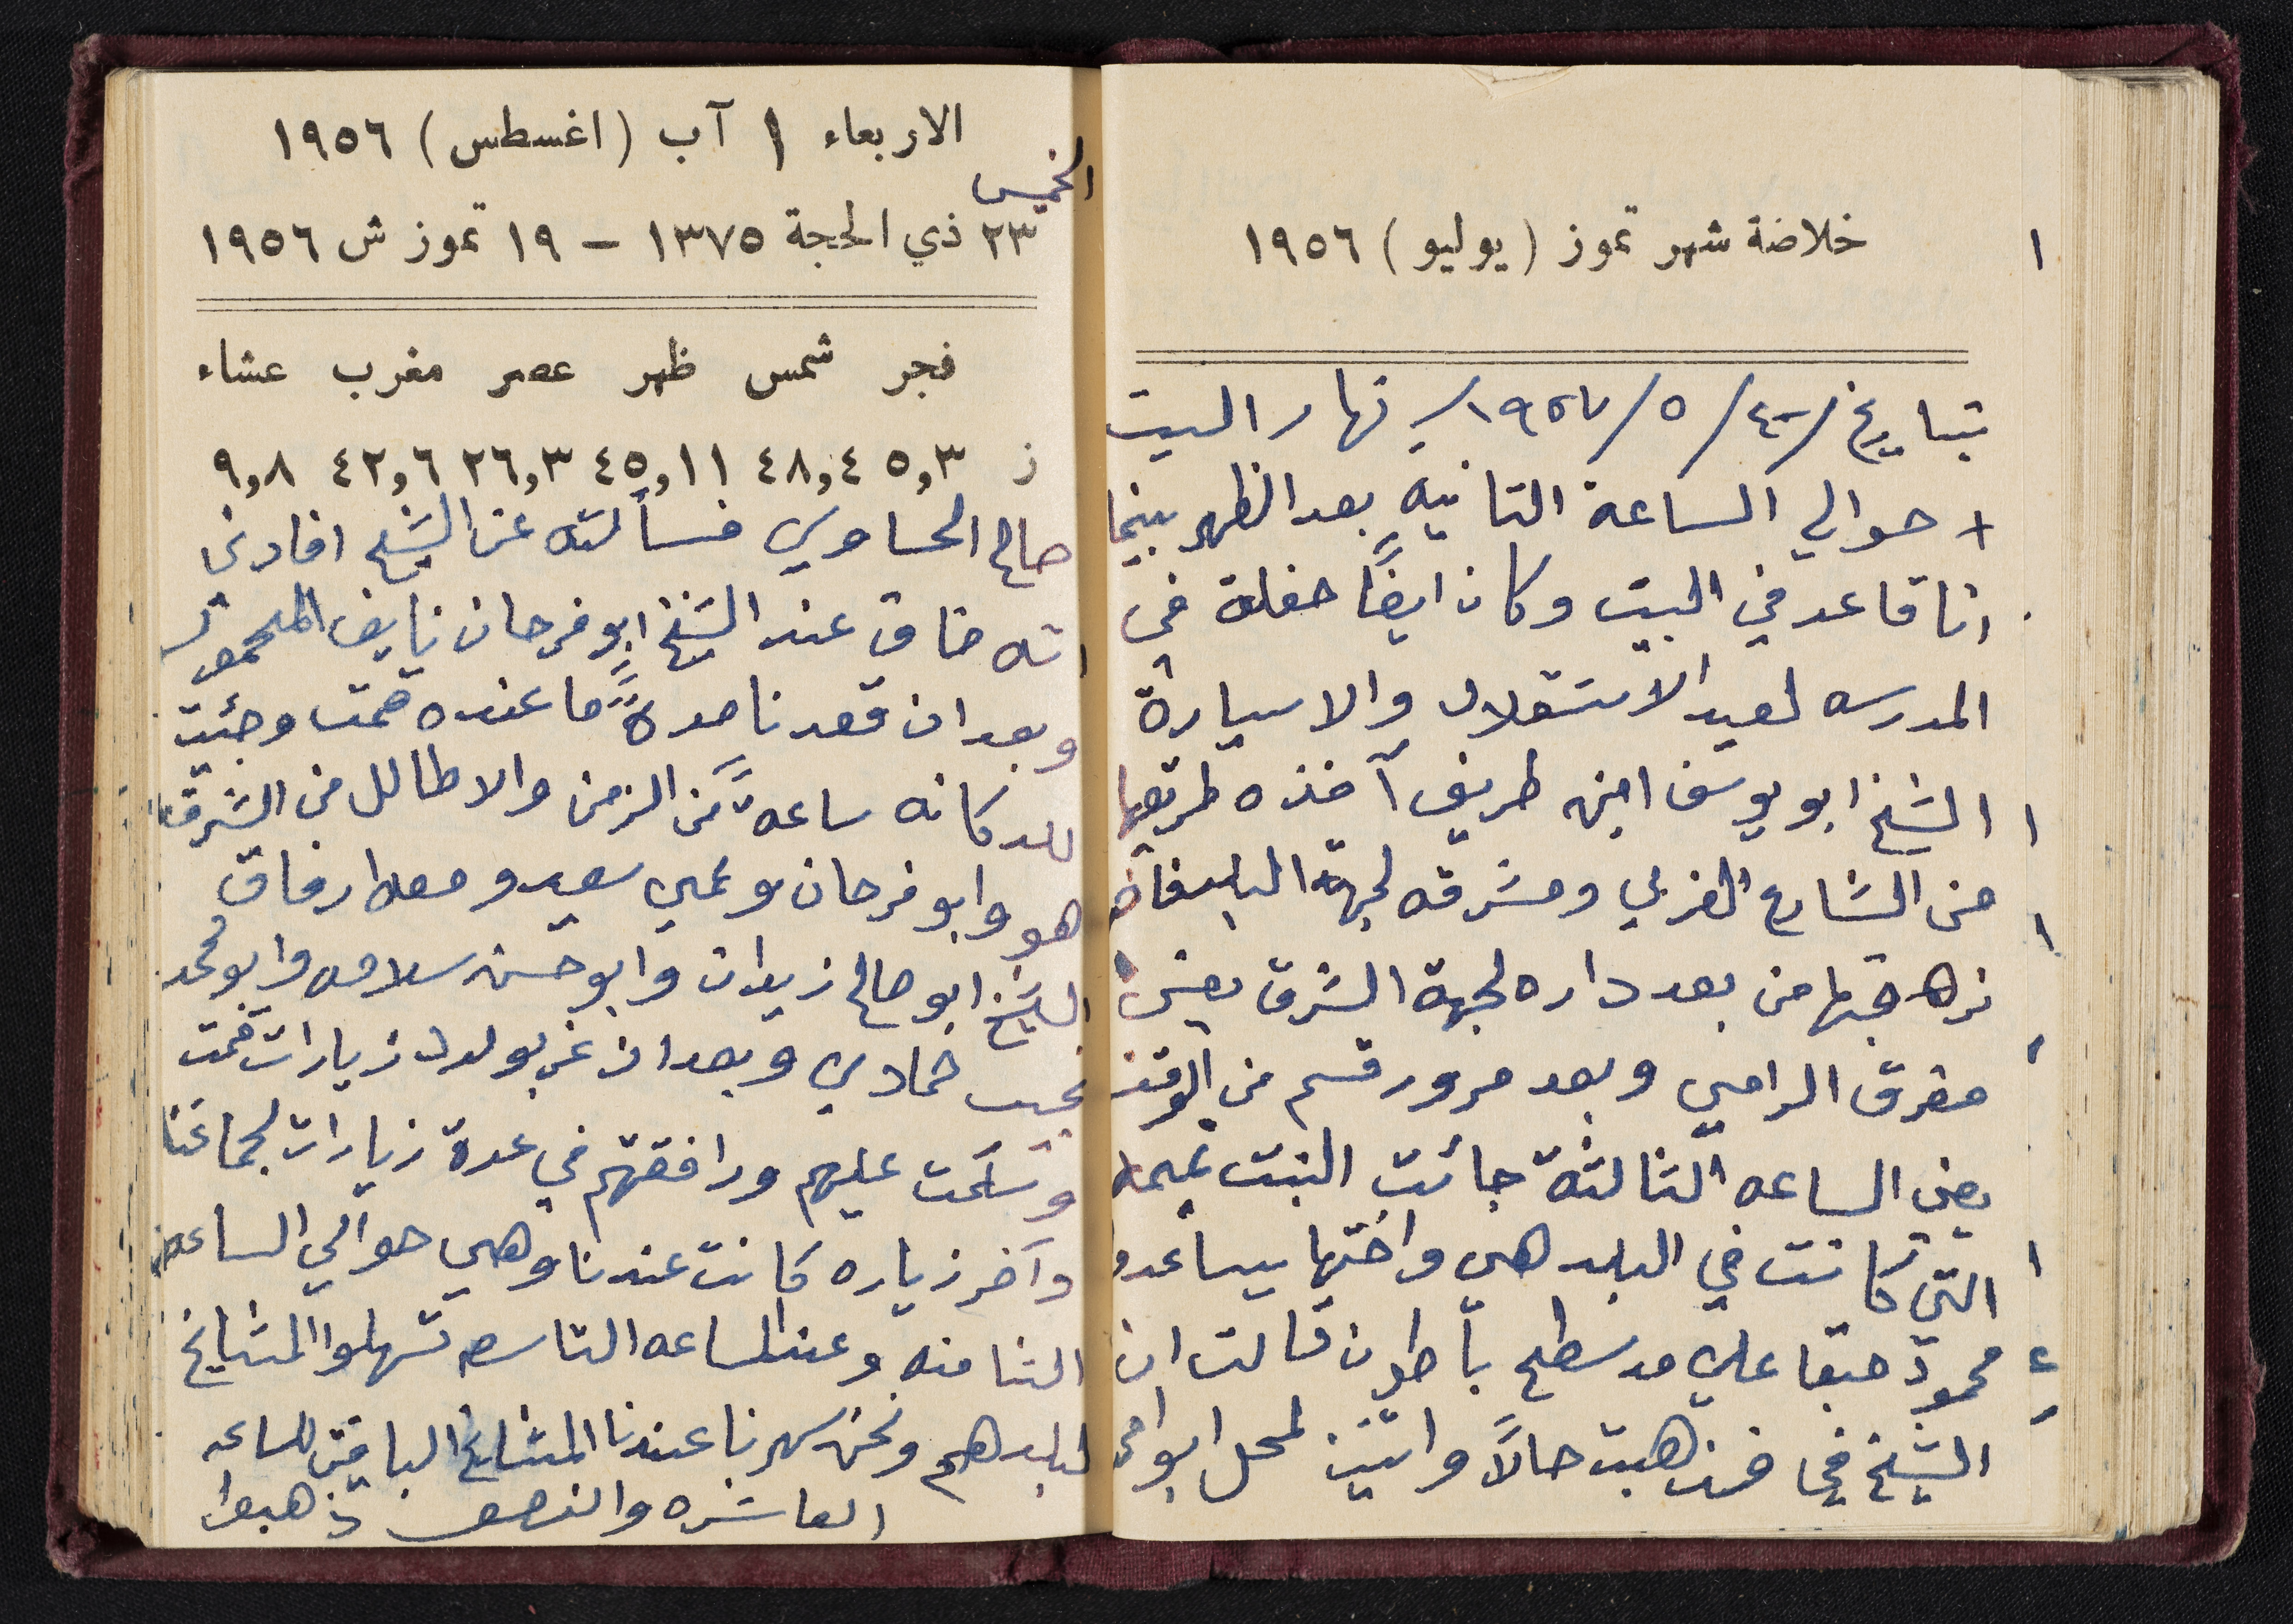 خلاصة شهر تموز (يوليو) ١٩٥٦
بتاريخ ٤/٥/١٩٥٧ نهار السبت
حوالي الساعة الثانيه بعد الظهر بينما
انا قاعد في البيت وكان ايضًا حفلة في
المدرسه لعيد الاستقلال والا سيارة
الشيخ ابو يوسف امين طريف آخذه طريقها
من الشارع الغربي ومشرقه لجهة
من بعد داره لجهة الشرق يعني
مفرق الرامي وبعد مرور قسم من الوقت
يعني الساعه الثالثة جائت البنت
التي كانت في البلد هي واختها بيساعدو
محمود على مد سطح باطون قالت ان
الشيخ فذهبت حالاً واتيت لمحل ابو
الاربعاء ١ آب (اغسطس) ١٩٥٦
الخميس
٢٣ ذي الحجة ١٣٧٥ – ١٩ تموز ش ١٩٥٦
فجر شمس ظهر عصر مغرب عشاء
ز ٥,٣ ٤٨,٤ ٤٥,١١ ٢٦,٣ ٤٢,٦ ٩,٨
صالح الحساوي فسألته عن الشيخ افادني
انه ضاق عند الشيخ ابو فرحان نايف المحمود
وبعد ان قعدنا مدةً ما عنده قمت وجئيت
للدكانه ساعةً من الزمن والا طالل من الشرق
هو وابو فرحان وعمي سعيد ومعه ارفاق
الشيخ ابو صالح زيدان وابو حسن سلامه وابو محمد
نجيب حمادي وبعد ان غربو لرد زيارات قمت
وسلمت عليهم ورافقتهم في عدة زيارات لجماعتنا
وآخر زياره كانت عندنا وهي حوالي الساعه
الثامنه وعند الساعه التاسعه تسهلوا المشايخ
لبلدهم ونحن سهرنا عندنا المشايخ الباقين للساعه
العاشره والنصف ذهبوا